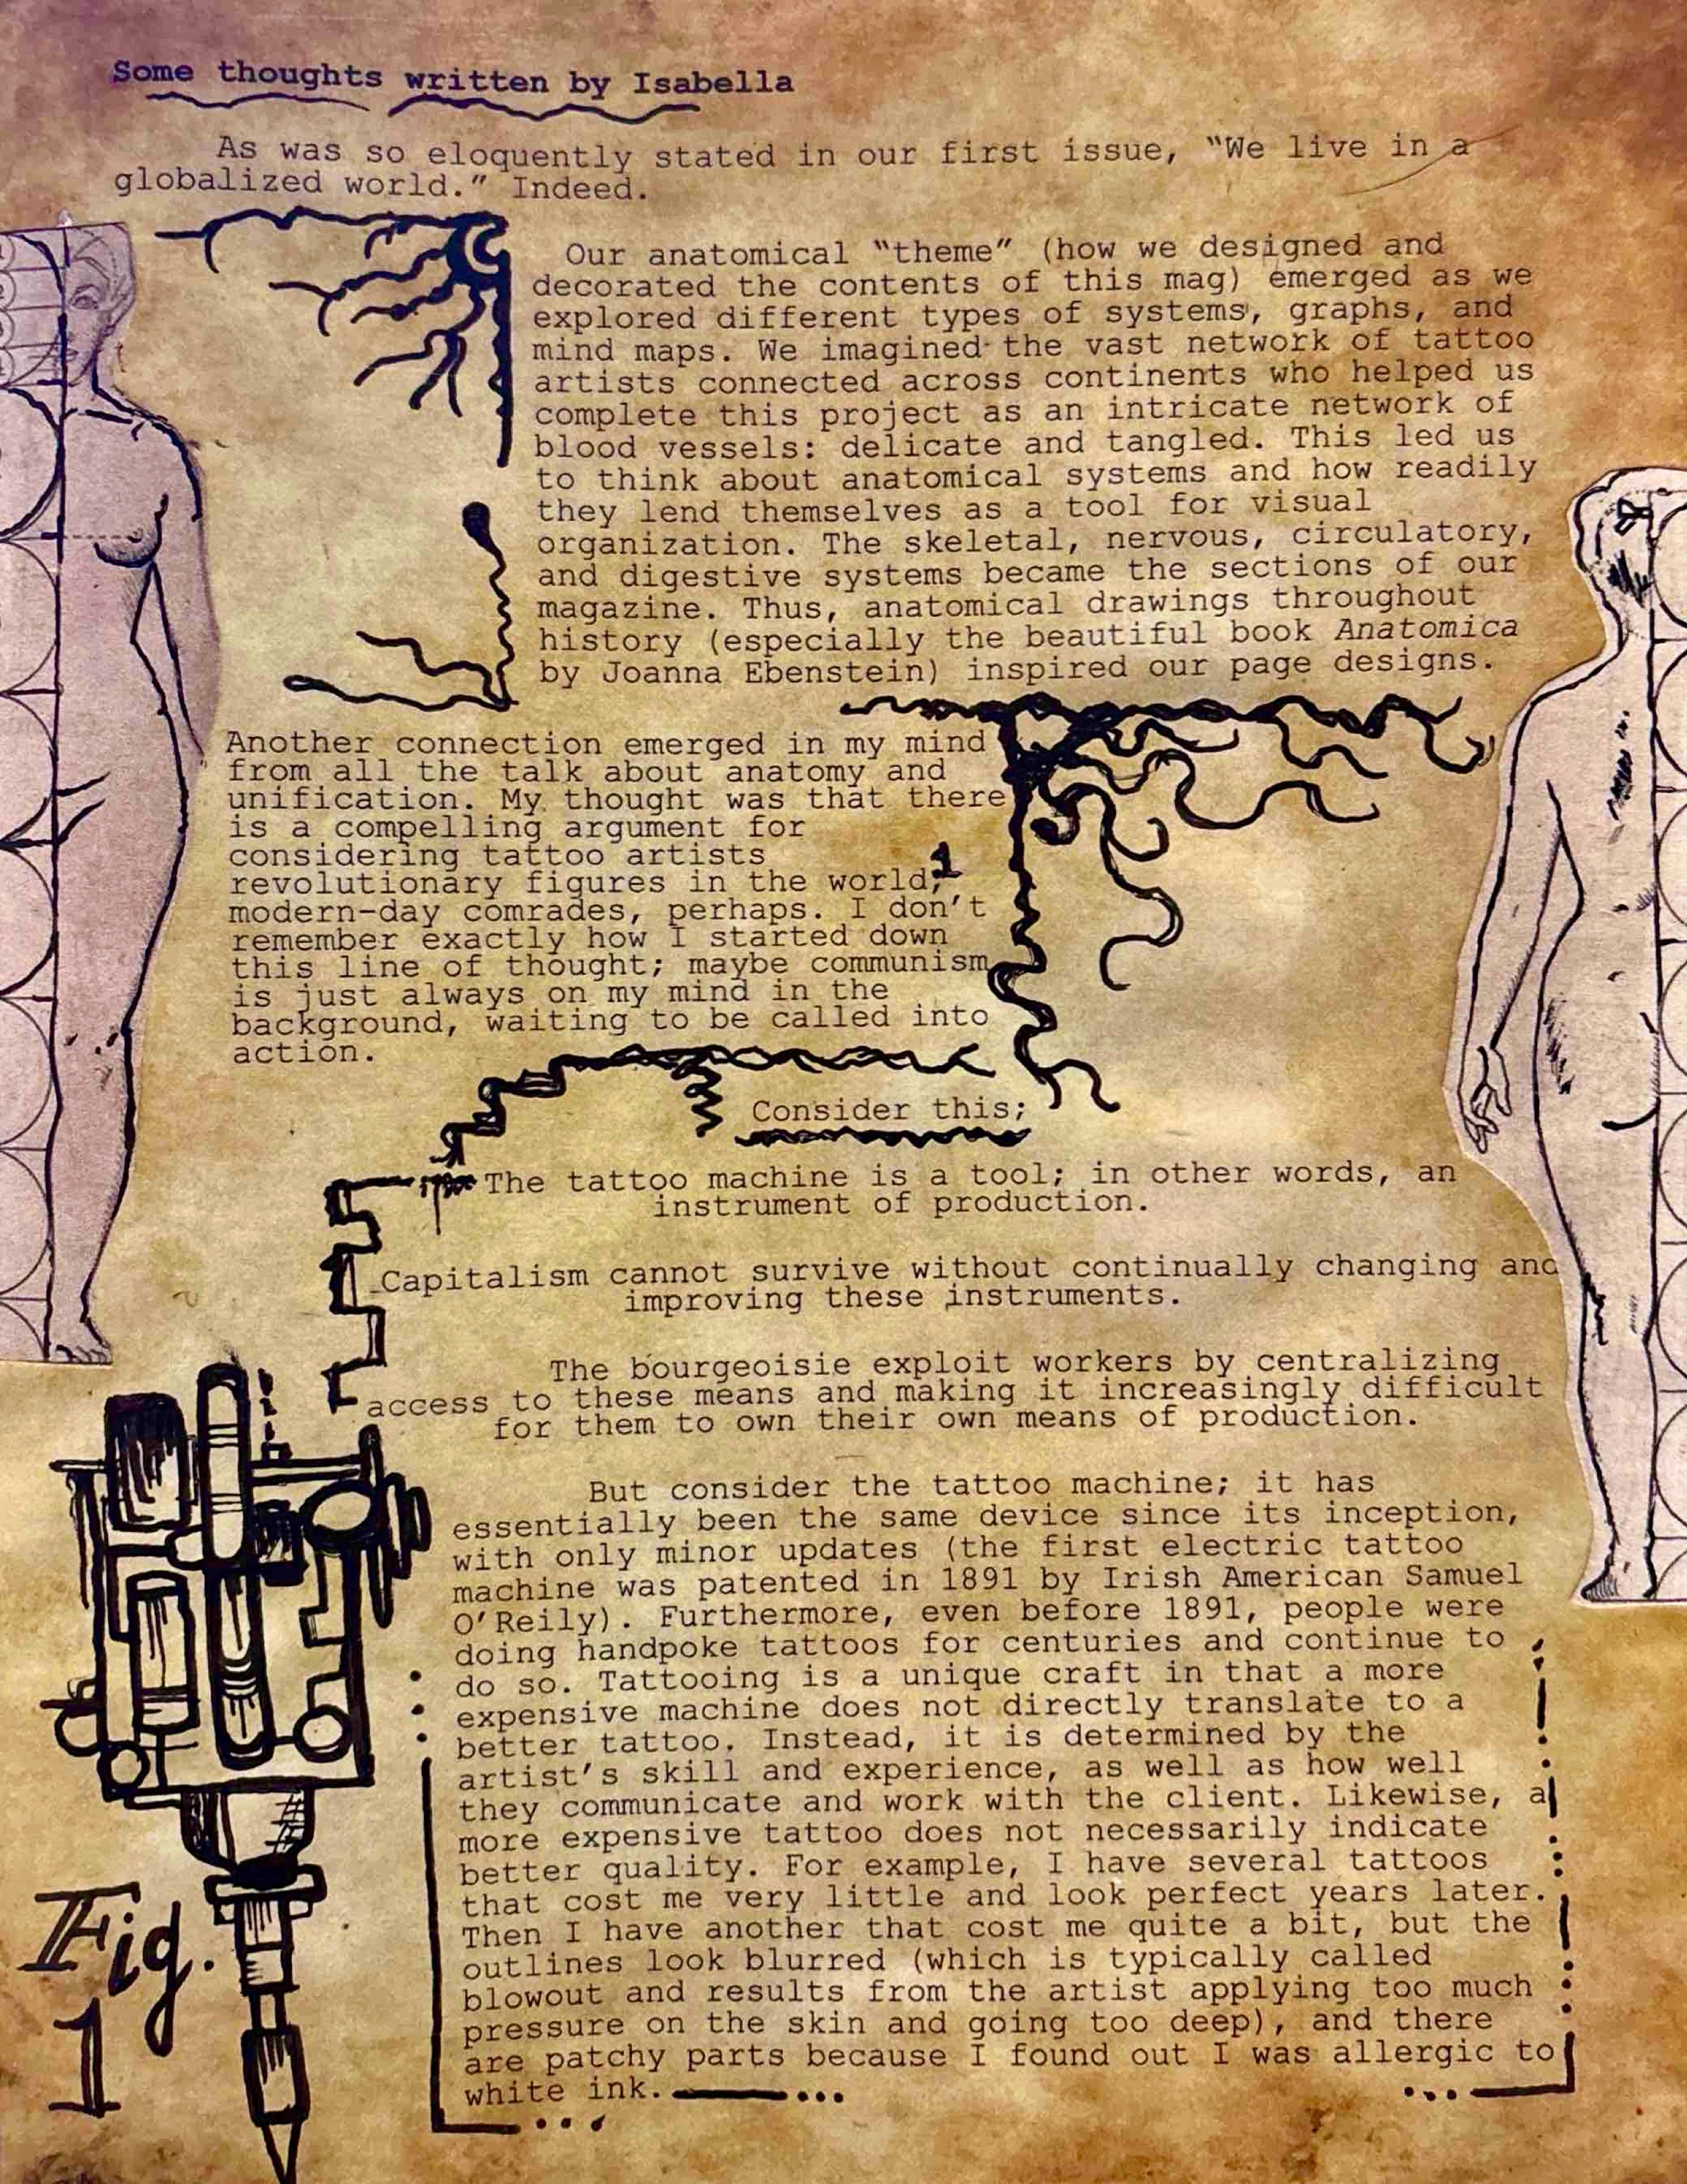 Some thoughts written by Isabella
As was so eloquently stated in our first issue, “We live in a
globalized world.” Indeed.
Our anatomical “theme” (how we designed and
decorated the contents of this mag) emerged as we
explored different types of systems, graphs, and
mind maps. We imagined the vast network of tattoo
artists connected across continents who helped us
complete this project as an intricate network of
blood vessels: delicate and tangled. This led us
to think about anatomical systems and how readily
they lend themselves as a tool for visual
organization. The skeletal, nervous, circulatory,
and digestive systems became the sections of our
magazine. Thus, anatomical drawings throughout
history (especially the beautiful book Anatomica
by Joanna Ebenstein) inspired our page designs.
Another connection emerged in my mind
from all the talk about anatomy and
unification. My thought was that there
is a compelling argument for
considering tattoo artists
revolutionary figures in the world;1
modern-day comrades, perhaps. I don’t
remember exactly how I started down
this line of thought; maybe communism
is just always on my mind in the
background, waiting to be called into
action.
Consider this;
The tattoo machine is a tool; in other words, an
instrument of production.
Capitalism cannot survive without continually changing and
improving these instruments.
The bourgeoisie exploit workers by centralizing
access to these means and making it increasingly difficult
for them to own their own means of production.
But consider the tattoo machine; it has
essentially been the same device since its inception,
with only minor updates (the first electric tattoo
machine was patented in 1891 by Irish American Samuel
O’Reily). Furthermore, even before 1891, people were
doing handpoke tattoos for centuries and continue to
do so. Tattooing is a unique craft in that a more
expensive machine does not directly translate to a
better tattoo. Instead, it is determined by the
artist’s skill and experience, as well as how well
they communicate and work with the client. Likewise, a
more expensive tattoo does not necessarily indicate
better quality. For example, I have several tattoos
that cost me very little and look perfect years later.
Then I have another that cost me quite a bit, but the
outlines look blurred (which is typically called
blowout and results from the artist applying too much
pressure on the skin and going too deep), and there
are patchy parts because I found out I was allergic to
white ink.
Fig.
1